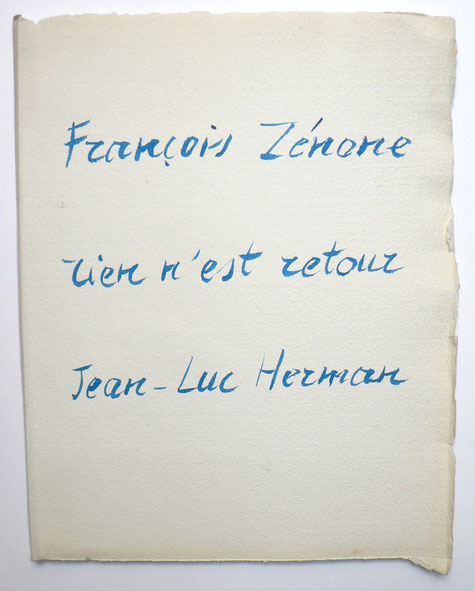 François Zénone
rien n'est retour
Jean-Luc Herman